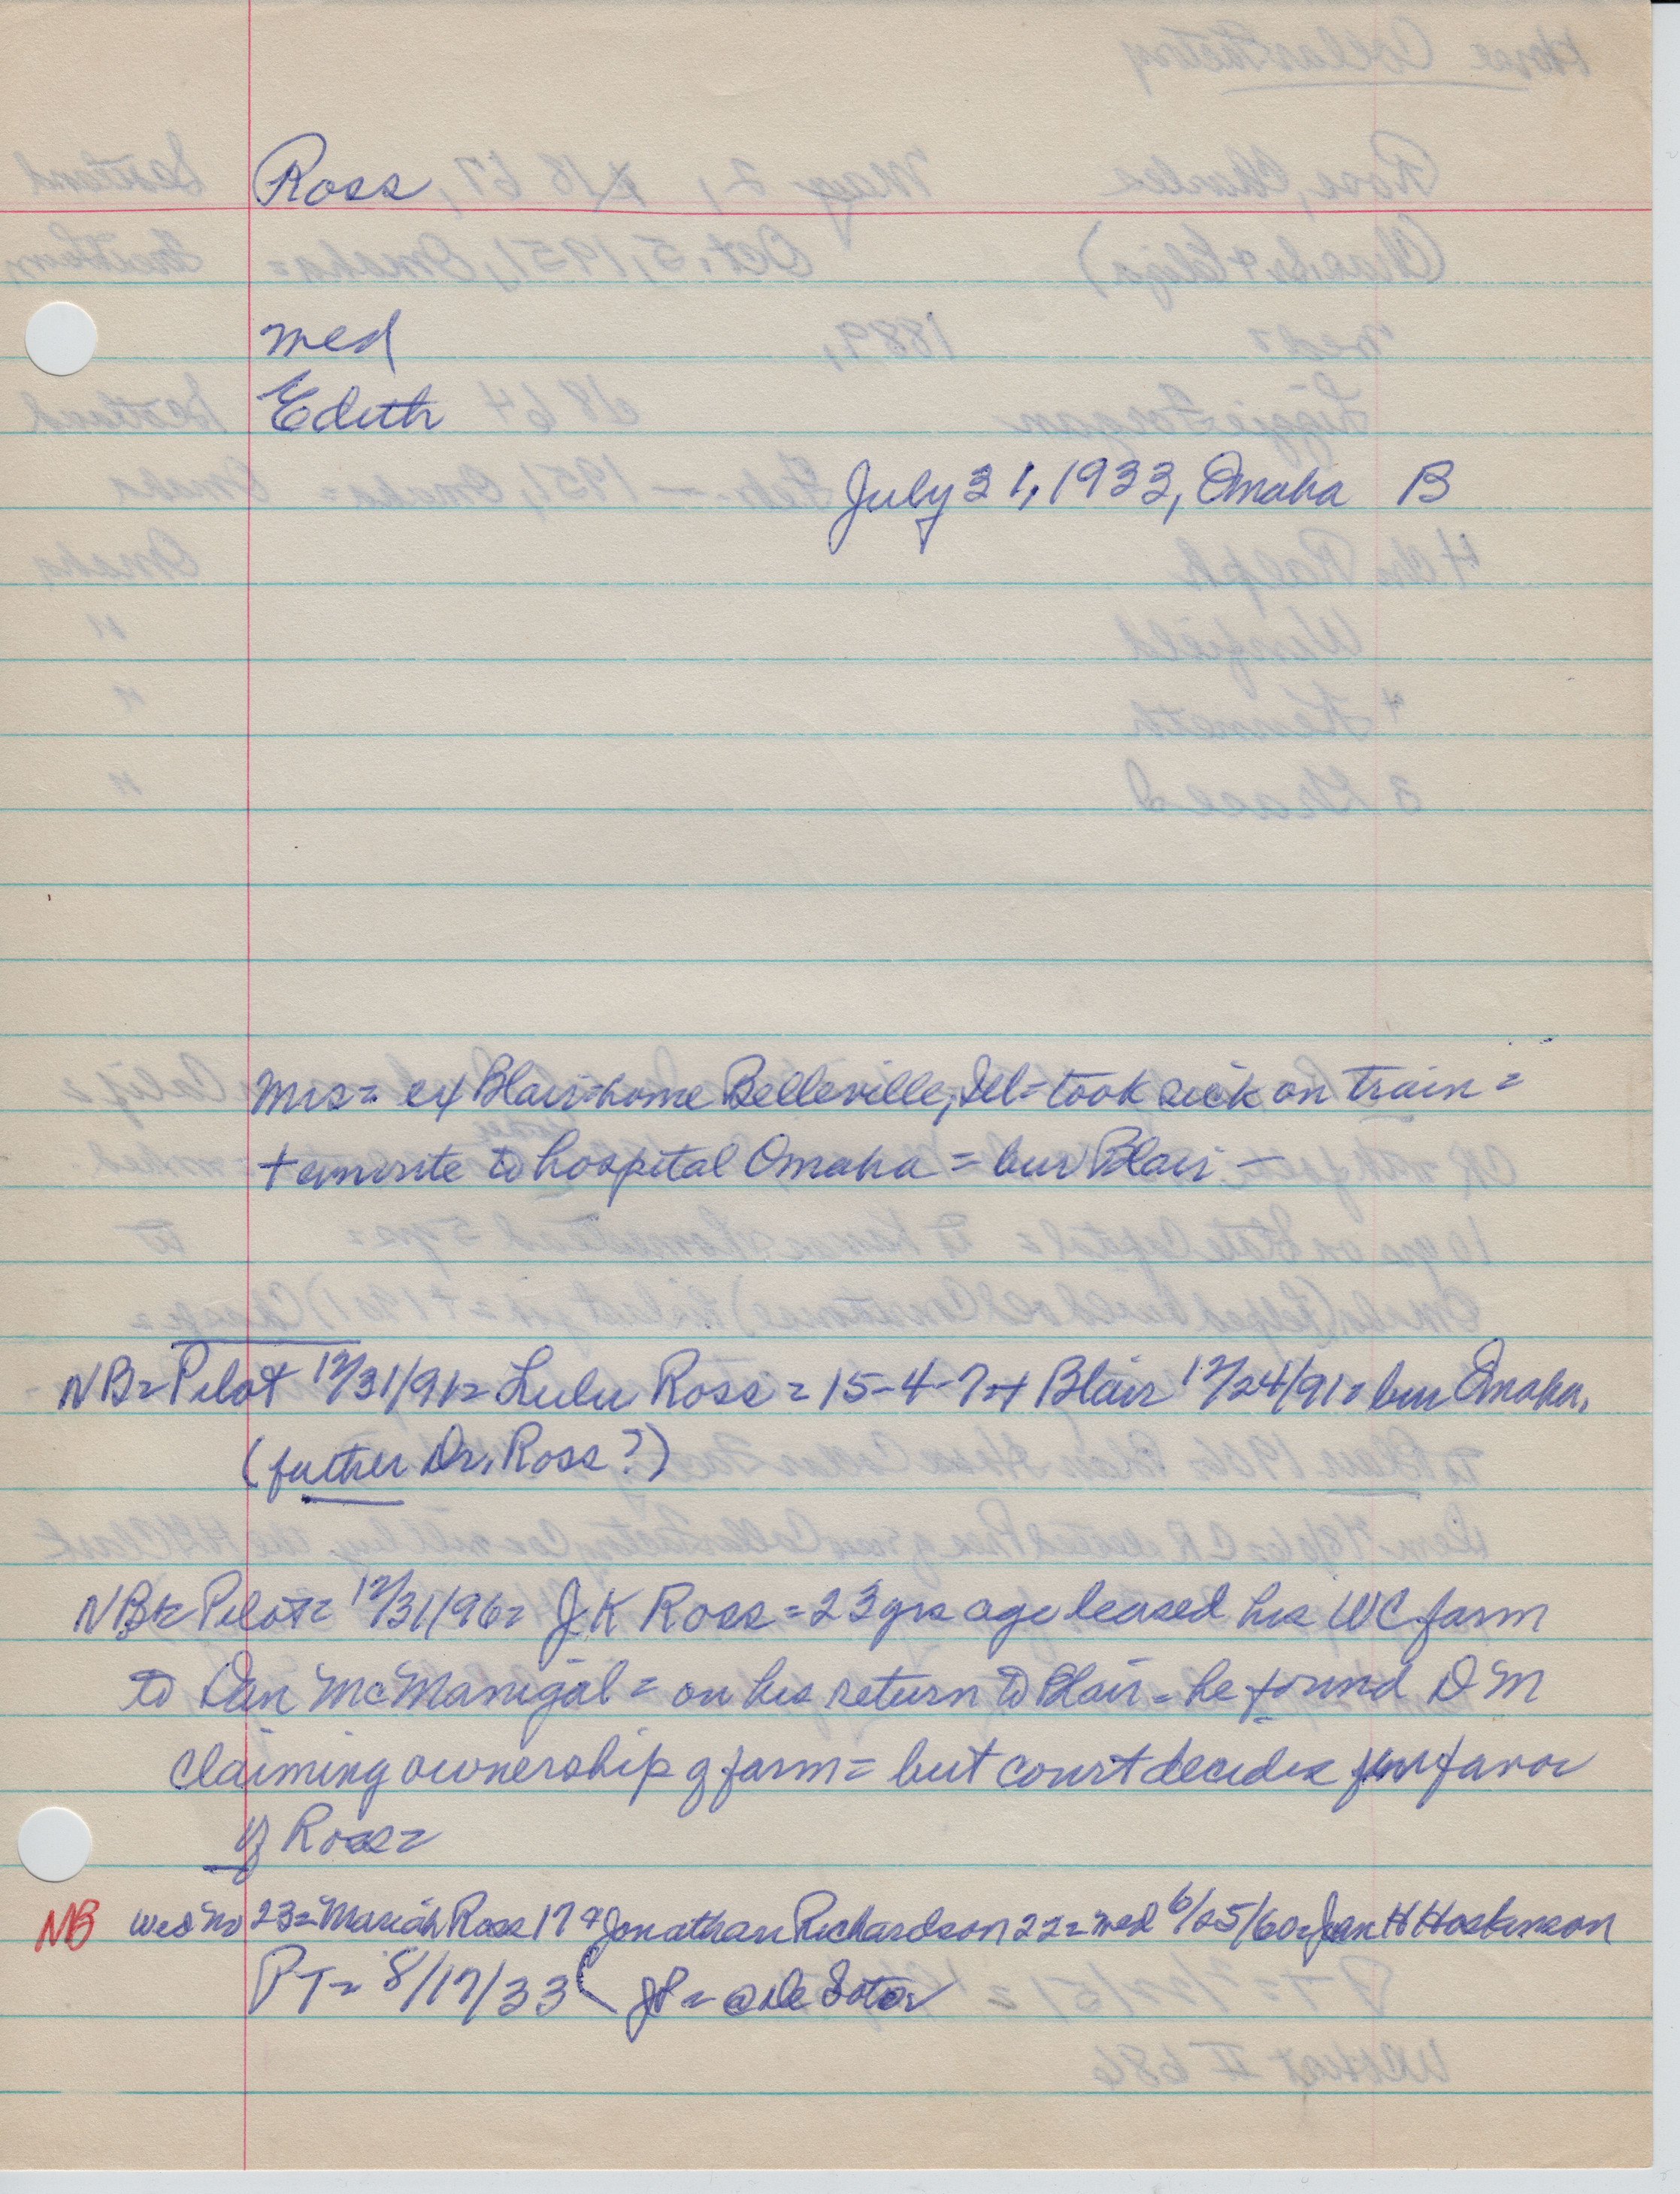 Ross
med
Edith
July 31, 1933, Omaha B
Mrs = ex Blair = home Belleville, Ill = took sick on train =
to hospital Omaha = bur Blair —
NB = Pilot 12/31/91 = Lulu Ross = 15-4-7 + Blair 12/24/91 = bur Omaha.
(father Dr. Ross?)
NB = Pilot = 12/31/96 = J K Ross = 23 yrs ago leased his WC farm
to Dan McManigal = on his return to Blair = he found D M
claiming ownership of farm = but court decides favor
of Ross =
NB Wed No 23 = Mariah Ross 17 + Jonathan Richardson 22 = med 6/25/60 = H Hoskinson
PT = 8/17/33 ( JP = @ De Soto